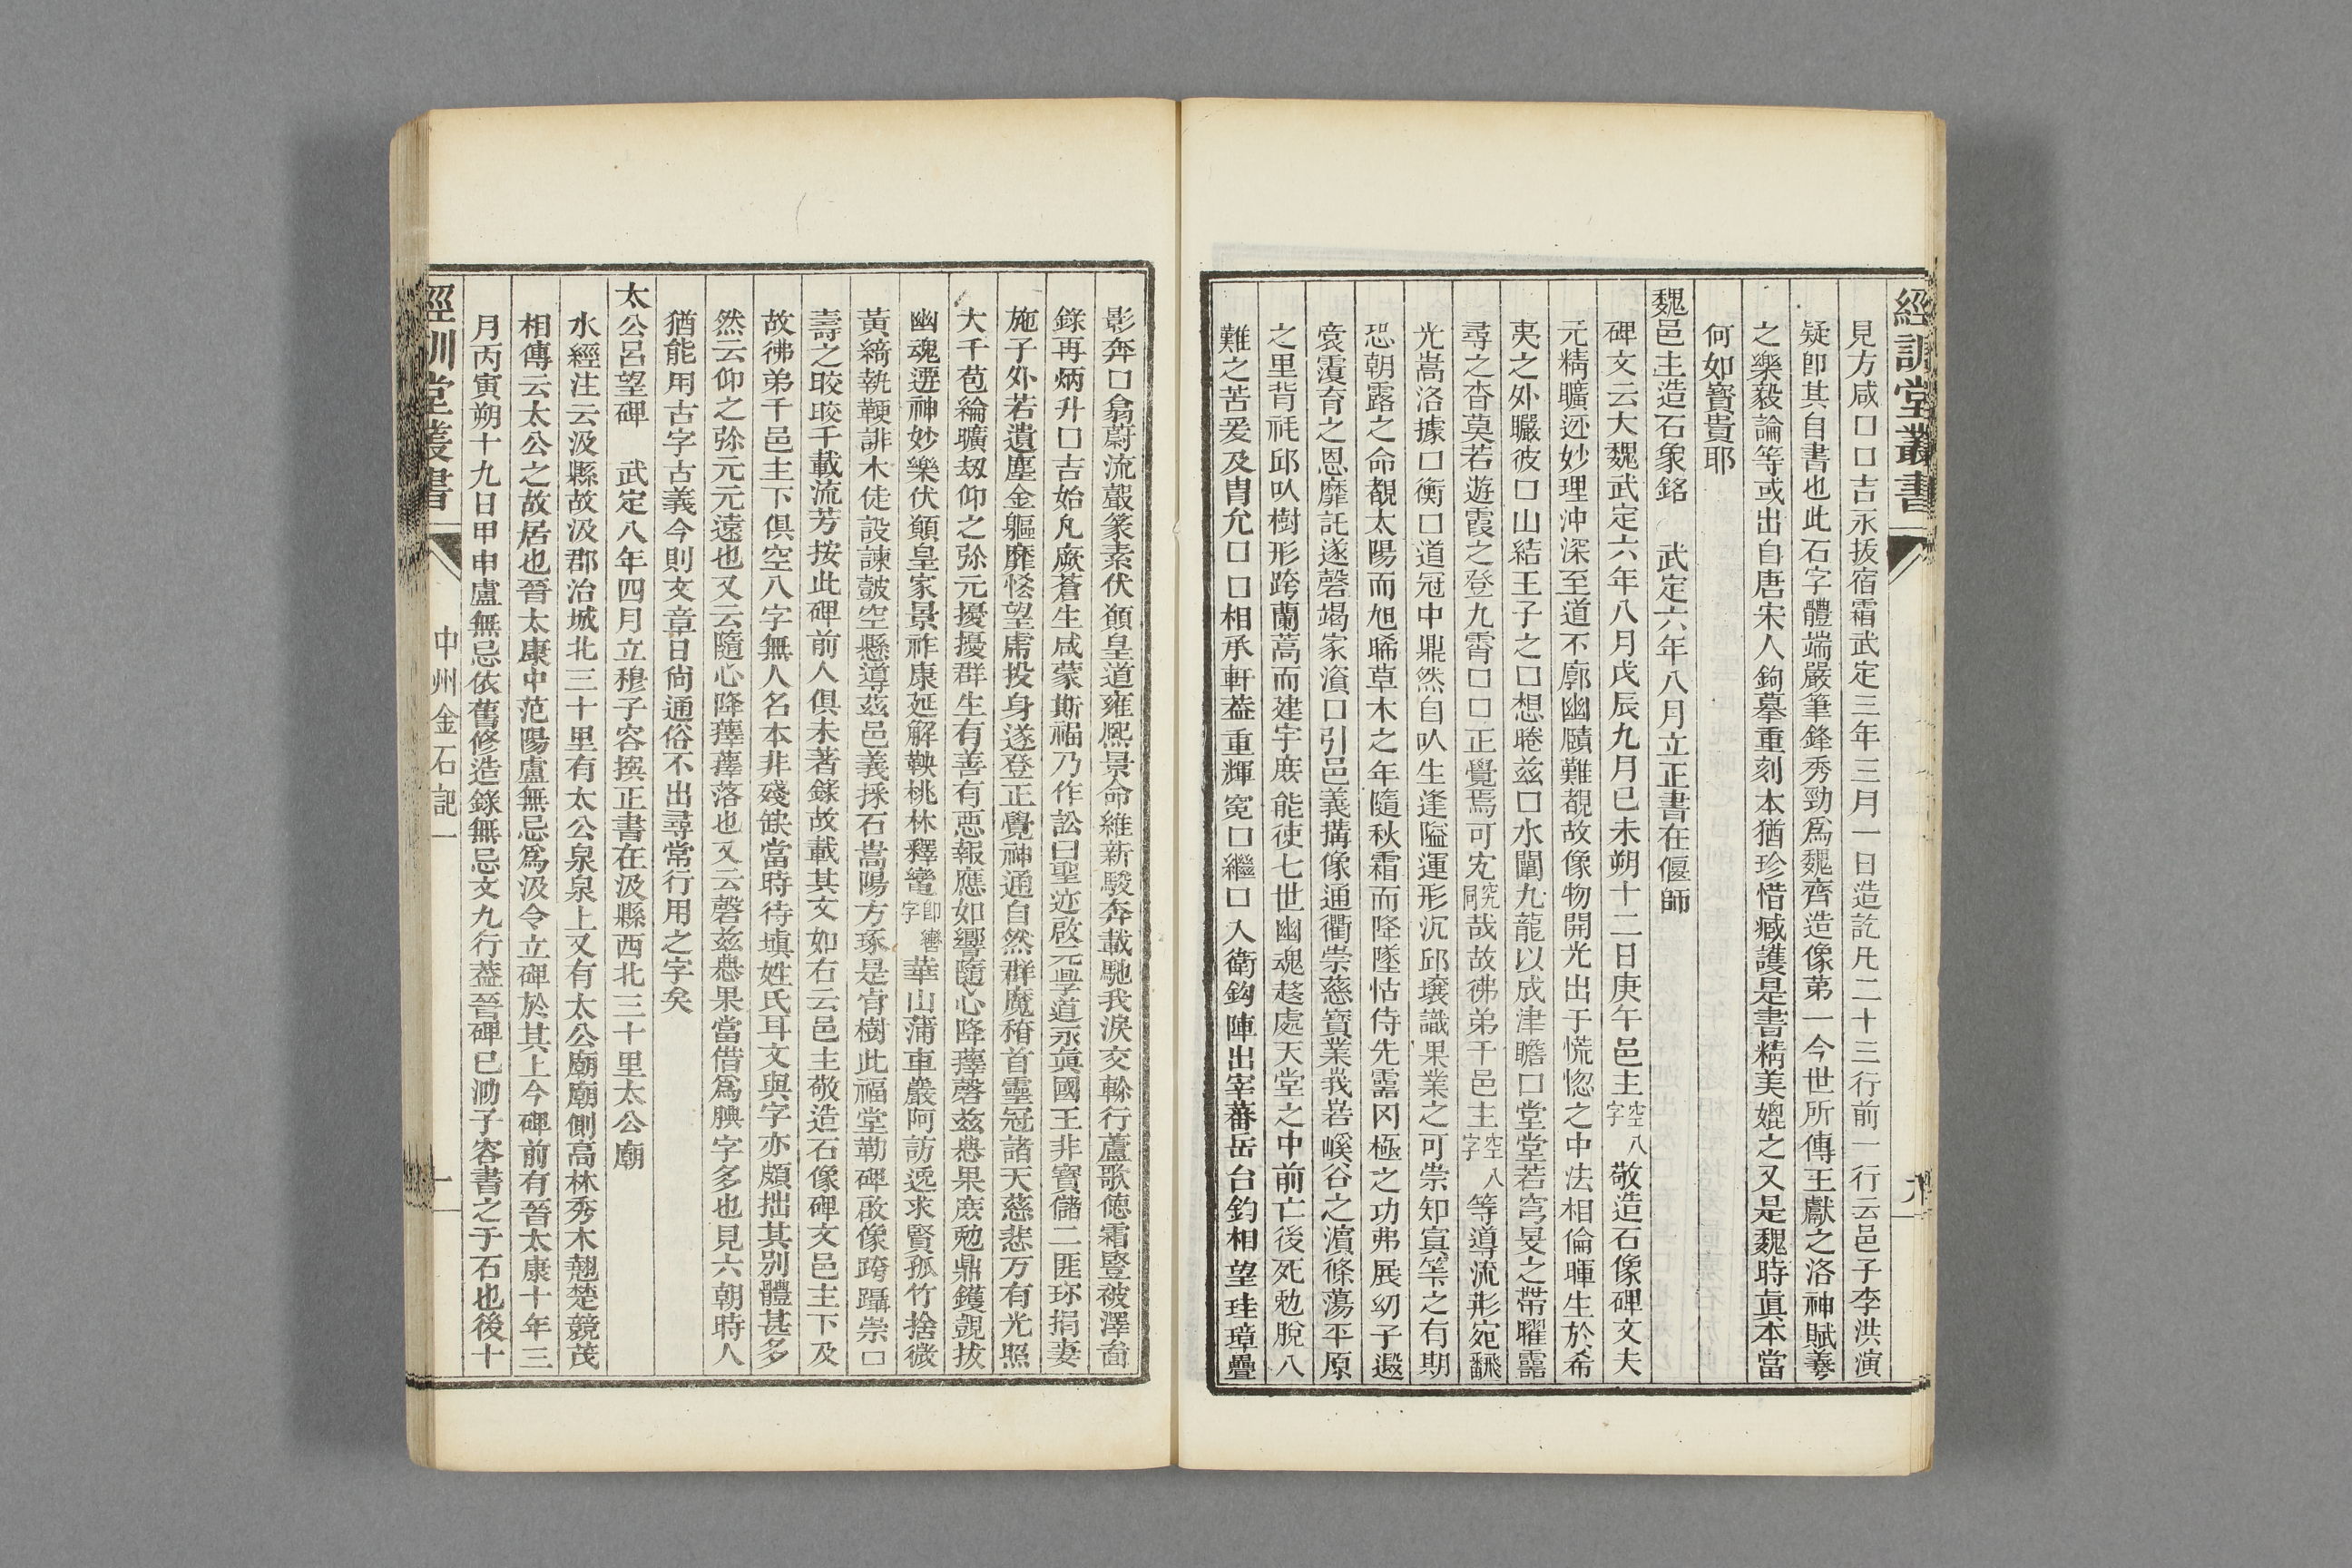 經訓堂叢書
見方咸口口吉永扳宿霜武定三年三月一日造訖凡二十三行前一行云邑子李洪演
疑卽其自書也此石字體端嚴筆鋒秀勁爲魏齊造像第一今世所傳王獻之洛神賦羲
之樂毅論等或出自唐宋人鉤摹重刻本猶珍惜臧護是書精美媲之又是魏時眞本當
何如寶貴耶
魏邑主造石象銘 武定六年八月立正書在偃師
碑文云大魏武定六年八月戊辰九月巳未朔十二日庚午邑主空八字敬造石像碑文夫
元精曠迹妙理沖深至道不廓幽賾難覩故像物開光出于慌惚之中法相倫暉生於希
夷之外曮彼口山結王子之口想睠兹口水闡九龍以成津瞻口堂堂若穹旻之帶曜靈
尋之杳莫若遊霞之登九霄口口正覺焉可宄究同哉故彿弟千邑主空八字等導流荊宛飜
光嵩洛據口衡口道冠中鼎然自㕥生逢隘運形沉邱壌識果業之可崇知寘筞之有期
恐朝露之命覩太陽而旭晞草木之年隨秋霜而降墜怙侍先靈冈極之功弗展幼子遐
㐮育之恩靡託遂磬竭家口引邑義搆像通衢崇慈寶業峩若嵠谷之濵條蕩平原
之里背秏邱㕥樹形跨蘭蒿而建宇庻能使七世幽魂趍處天堂之中前亡後死勉脫八
難之苦爰及胄允口口相承軒葢重輝寃口繼口入衛鈎陣出宰蕃岳台鈞相望珪璋疊
影奔口翕蔚流馥篆素伏願皇道雍熈景命維新駿奔載馳我淚交軫行蘆歌德霜豎被澤畣
錄再炳升口吉始凡厥蒼生咸蒙斯福乃作訟曰聖迹啟元學道永眞國王非寶儲二匪珎捐妻
施子外若遺塵金軀靡恡望虏投身遂登正覺神通自然群魔稽首靈冠諸天慈悲万有光照
大千苞綸曠刼仰之弥元擾擾群生有善有惡報應如響隨心降㩐磬兹㥍果庻勉鼎鑊覬拔
幽魂遷神妙樂伏願皇家景祚康延解鞅桃林釋轡卽轡字華山蒲車巖阿訪逸求賢孤竹捨薇
黃綺執鞕誹木徒設諫皷空懸導茲邑義採石嵩陽方琢是肻樹此福堂勒碑啟像跨躡崇口
壽之晈晈千載流芳按此碑前人俱未著錄故載其文如右云邑主敬造石像碑文邑主下及
故彿弟千邑主下俱空八字無人名本非殘缺當時待塡姓氏耳文與字亦頗拙其別體甚多
然云仰之弥元元遠也又云隨心降㩐㩐落也又云磬兹㥍果當借爲腆字多也見六朝時人
猶能用古字古義今則文章日尙通俗不出尋常行用之字矣
太公呂望碑 武定八年四月立穆子容撰正書在汲縣西北三十里太公廟
水經注云汲縣故汲郡治城北三十里有太公泉泉上又有太公廟廟側高林秀木翹楚競茂
相傳云太公之故居也晉太康中范陽盧無忌爲汲令立碑於其上今碑前有晉太康十年三
月丙寅朔十九日甲申盧無忌依舊修造錄無忌文九行葢晉碑已泐子容書之于石也後十
經訓堂叢書
中州金石記一